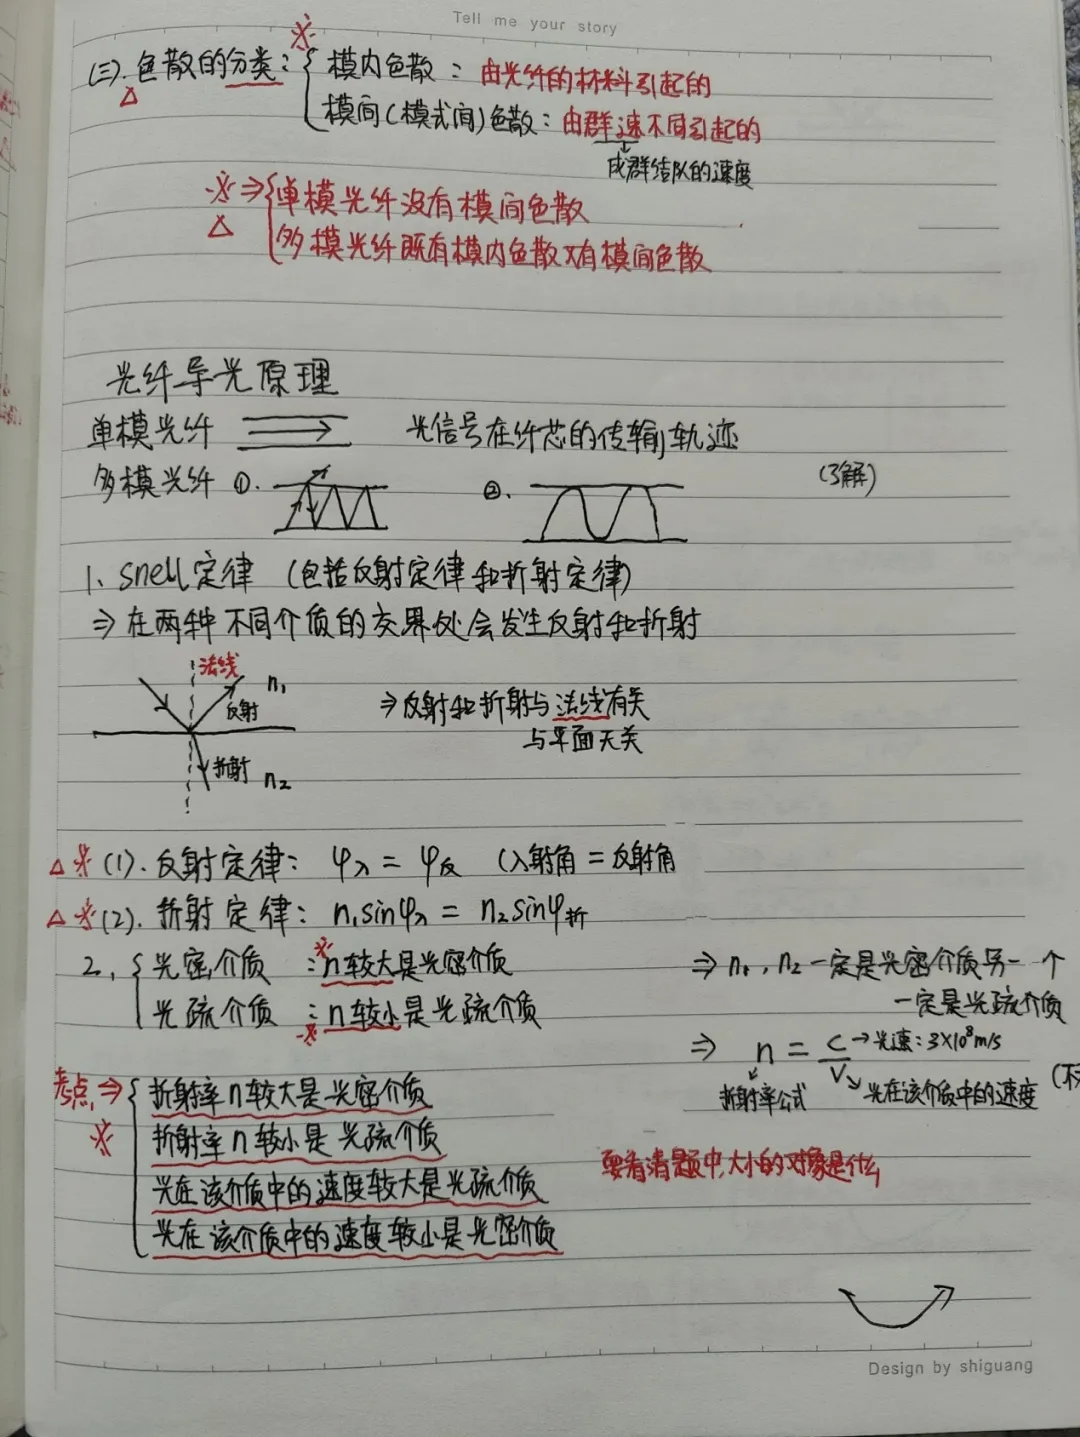 Tell me your story
(三).色散的分类：{ 模内色散：由光纤的材料引起的
模间(模式间)色散：由群速不同引起的
成群结队的速度
※⇒{单模光纤没有模间色散
△ 多模光纤既有模内色散又有模间色散
光纤导光原理
单模光纤 光信号在纤芯的传输轨迹
多模光纤 ①. ②. (了解)
1、snell定律 (包括反射定律和折射定律)
⇒在两种不同介质的交界处会发生反射和折射
法线 n₁
反射 ⇒反射和折射与法线有关
与平面无关
折射 n₂
△※(1).反射定律：φ入 = φ反 (入射角 = 反射角
△※(2).折射定律：n₁sinφ入 = n₂sinφ折
2、{ 光密介质 ：n较大是光密介质 ⇒ n₁,n₂一定是光密介质另一个
光疏介质 ：n较小是光疏介质 一定是光疏介质
⇒ n = C/V →光速：3×10⁸m/s
折射率公式 光在该介质中的速度
考点⇒{ 折射率n较大是光密介质
※ 折射率n较小是光疏介质
要看清题中,大小的对象是什么
光在该介质中的速度较大是光疏介质
光在该介质中的速度较小是光密介质
Design by shiguang